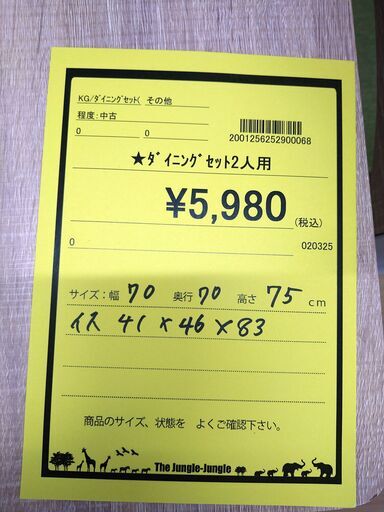 KG/ﾀﾞｲﾆﾝｸﾞｾｯﾄ( その他
程度:中古
0 0
2001256252900068
★ﾀﾞｲﾆﾝｸﾞｾｯﾄ2人用
¥5,980
(税込)
0 020325
サイズ:幅 70 奥行 70 高さ 75 cm
イス 41×46×83
商品のサイズ、状態を よくご確認下さい。
The Jungle-Jungle